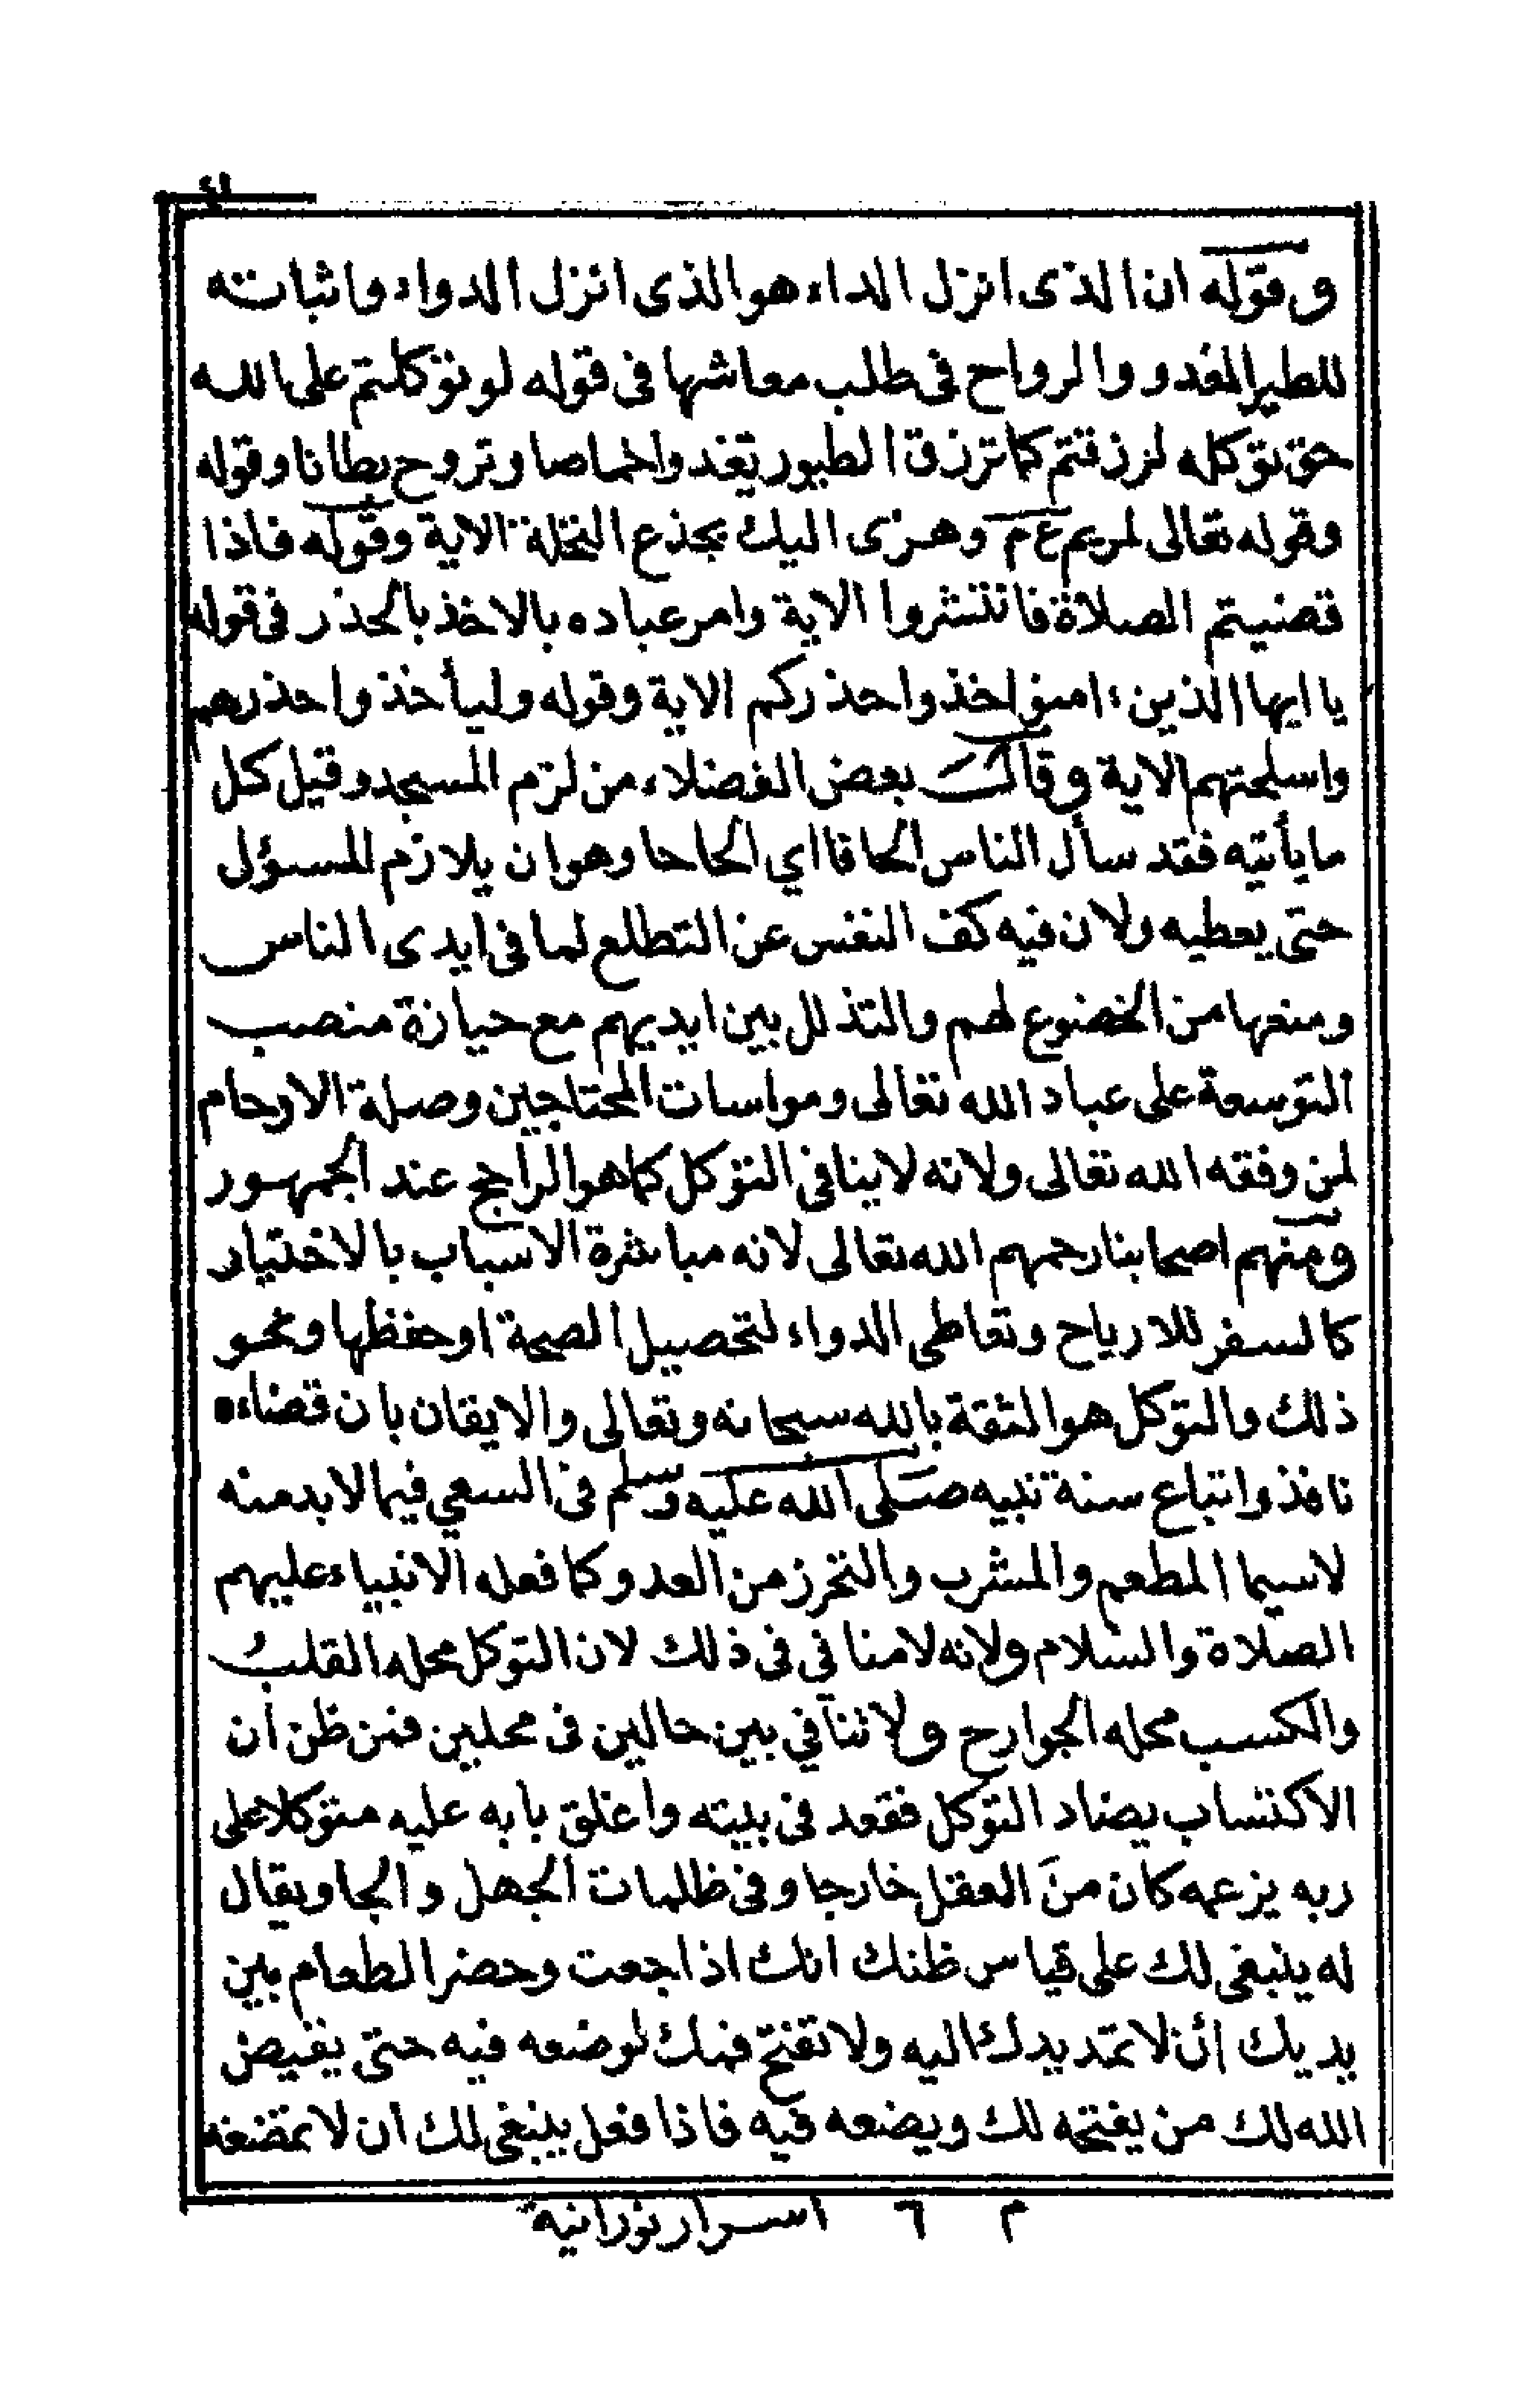 وقوله ان الذى انزل الداء هو الذى انزل الدواء واثباته
للطير الغدو والرواح فى طلب معاشها فى قوله لو توكلتم على الله
حق توكله لرزقتم كما ترزق الطيور تغدوا خماصا وتروح بطانا وقوله
وقوله تعالى لمريم ع م وهزى اليك بجذع النخلة الاية وقوله فاذا
قضيتم الصلاة فانتشروا الاية وامر عباده بالاخذ بالحذر فى قوله
يا ايها الذين ءامنوا خذوا حذركم الاية وقوله وليأخذوا حذرهم
واسلحتهم الاية وقال بعض الفضلاء من لزم المسجد وقيل كل
ما يأتيه فقد سأل الناس الحافا اي الحاحا وهو ان يلازم المسؤل
حتى يعطيه ولان فيه كف النفس عن التطلع لما فى ايدى الناس
ومنعها من الخضوع لهم والتذلل بين ايديهم مع حيازة منصب
التوسعة على عباد الله تعالى ومواسات المحتاجين وصلة الارحام
لمن وفقه الله تعالى ولانه لا ينافى التوكل كما هو الراجح عند الجمهور
ومنهم اصحابنا رحمهم الله تعالى لانه مباشرة الاسباب بالاختيار
كالسفر للارباح وتعاطى الدواء لتحصيل الصحة او حفظها ونحو
ذلك والتوكل هو الثقة بالله سبحانه وتعالى والايقان بان قضاءه
نافذ واتباع سنة نبيه صلى الله عليه وسلم فى السعي فيما لا بد منه
لا سيما المطعم والمشرب والتحرز من العدو كما فعله الانبياء عليهم
الصلاة والسلام ولانه لا منافي فى ذلك لان التوكل محله القلب
والكسب محله الجوارح ولا تنافي بين حالين فى محلين فمن ظن ان
الاكتساب يضاد التوكل فقعد فى بيته واغلق بابه عليه متوكلا على
ربه بزعمه كان من العقل خارجا وفى ظلمات الجهل والجا ويقال
له ينبغى لك على قياس ظنك انك اذا جعت وحضر الطعام بين
يديك أن لا تمد يدك اليه ولا تفتح فمك لوضعه فيه حتى يفيض
الله لك من يفتحه لك ويضعه فيه فاذا فعل ينبغى لك ان لا تمضغه
م ٦ اسرار نورانية